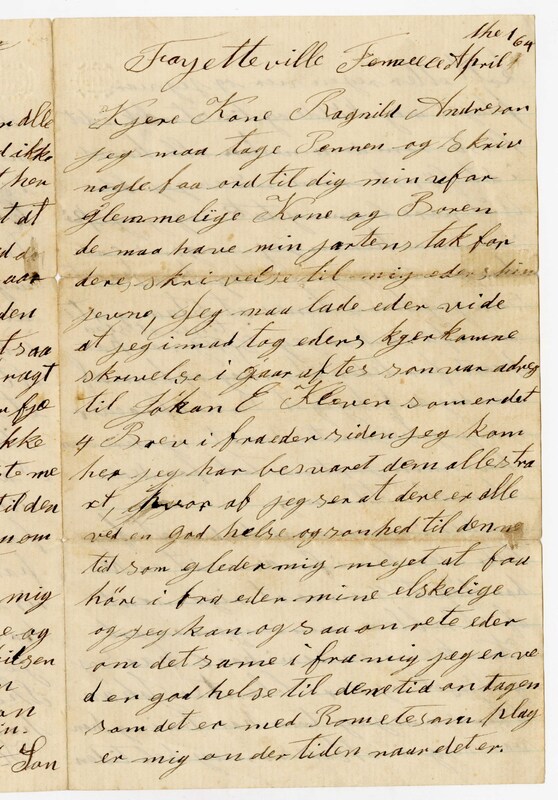 the 1
64
Fayetteville Tennecee April
Kjere Kone Ragnild Andreson
jeg maa tage Pennen og skriv
nogle faa ord til dig min ufor
glemmelige Kone og Boren
de maa have min jartens tak for
deres skrivelse til mig eder
jevne, Jeg maa lade eder vide
at jeg imod tog eders kjerkomne
skrivelse i gaar aftes som var adres
til Johan E Kleven som er det
4 Brev i fra eder siden jeg kom
her jeg har besvaret dem alle stra
xt, hvor af jeg ser at dere er alle
ved en god helse og sonhed til denne
tid som gleder mig meget at faa
höre i fra eder mine elskelige
og jeg kan og saa on rete eder
om det same i fra mig jeg er ve
d en god helse til dene tid on tagen
som det er med Rometesom plag
er mig onder tiden naar det er.
alle
ikke
her
t at
aar
den
t saa
ragt
r fjæ
ikke
te me
til den
n om
mig
e og
ilsen
Son